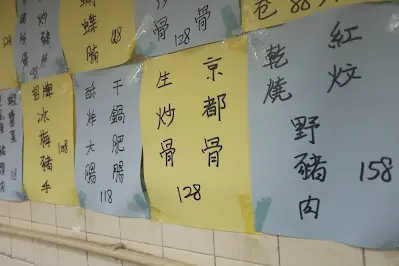 卷
骨
骨
128
蝴蝶腩
紅炆
乾燒
野豬肉
158
京都骨
生炒骨
128
干鍋肥腸
酥炸大腸
118
招牌
冰梅豬手
108